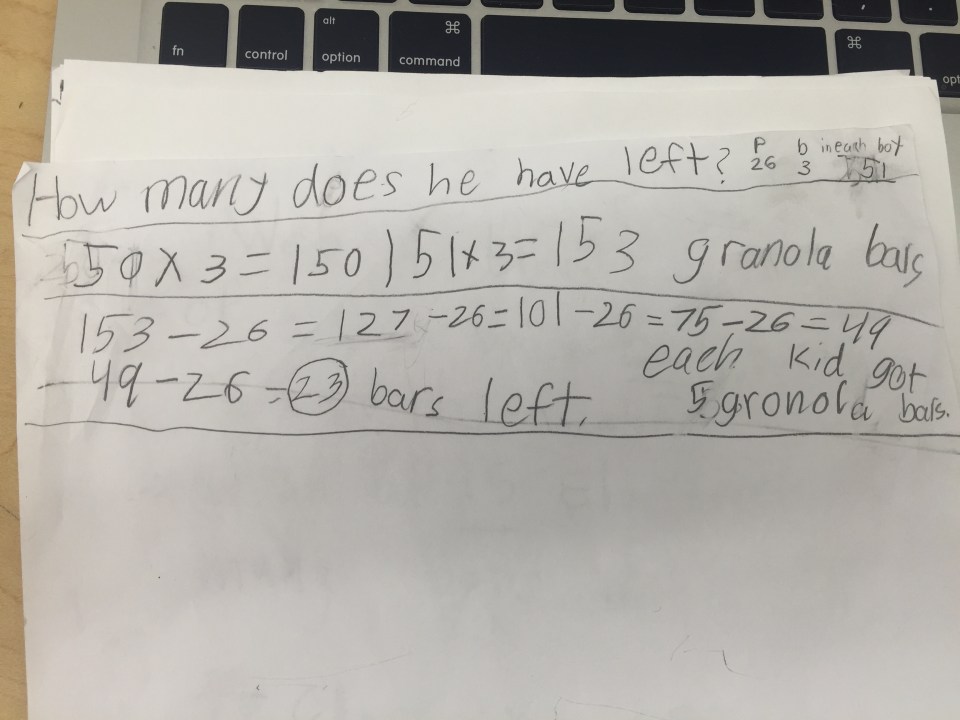 fn
control
alt
option
⌘
command
⌘
,
.
opt
How many does he have left? P 26 b 3 in each box 51
50 x 3 = 150 ) 51x3=153 granola bars
153-26 = 127-26=101-26=75-26=49
-49-26=23 bars left.
each kid got
5 gronola bars.